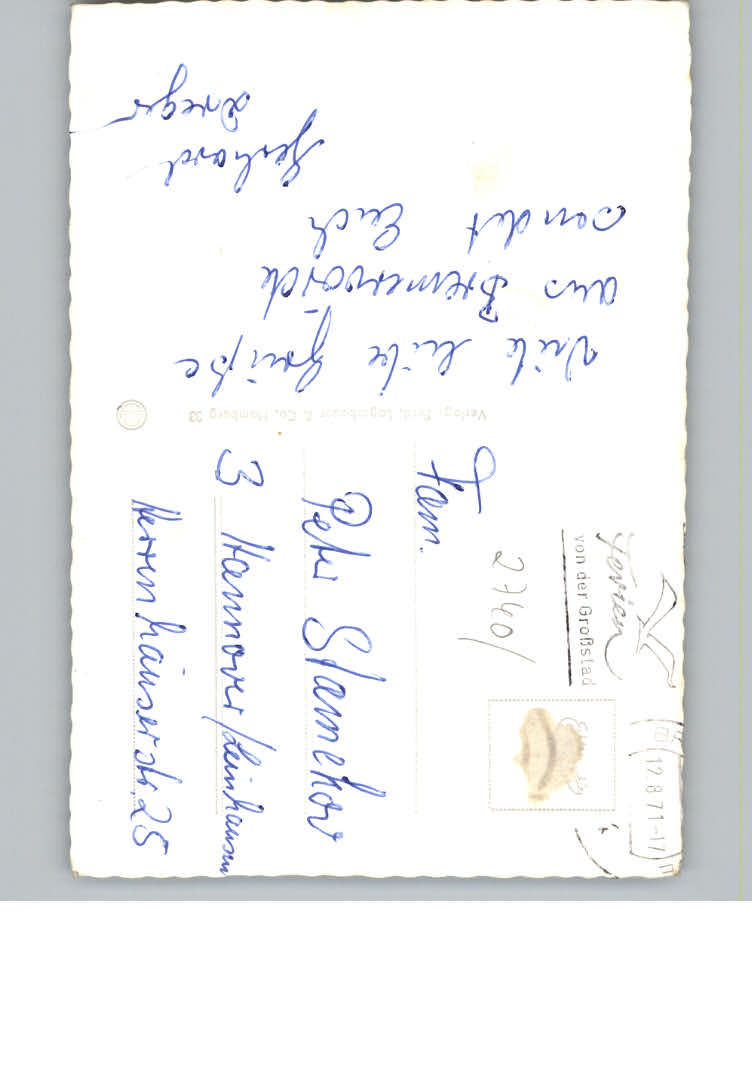 Viele liebe Grüße
aus Bremervörde
sendet Euch
Gerhard
Verlag: Ferd. Lagerbauer & Co., Hamburg 33
Fam.
Peter Stannekow
3 Hannover/Leinhausen
Herrenhäuserstr. 25
2740/
Ferien
von der Großstad
12.8.71-17